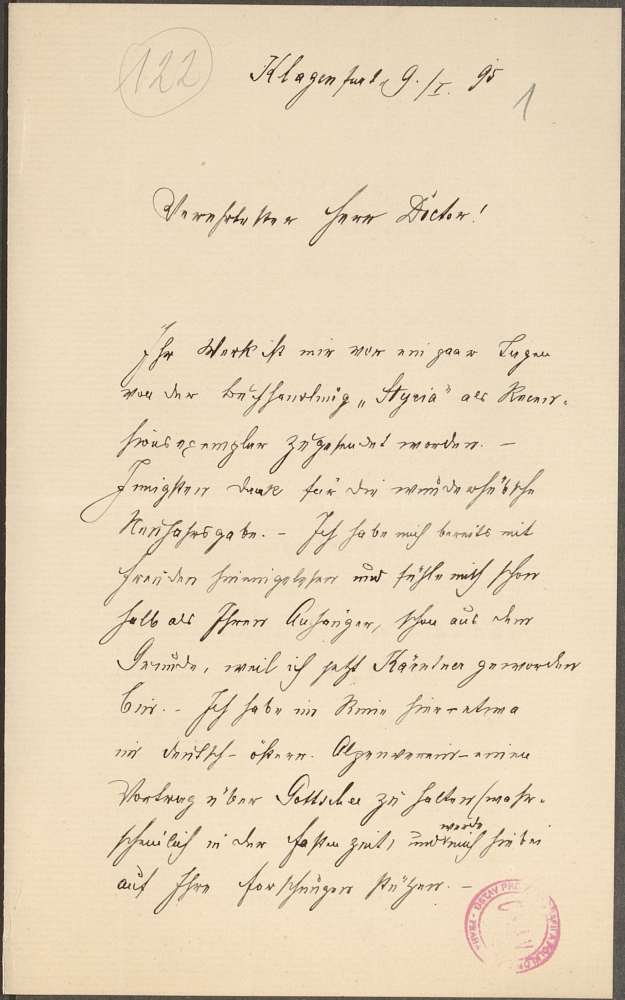 122
Klagenfurt, 9./I. 95
1
Verehrtester Herr Doctor!
Ihr Werk ist mir vor ein paar Tagen
von der Buchhandlung „Styria“ als Recen-
sionsexemplar zugesendet worden. –
Innigsten Dank für die wunderhübsche
Neujahrsgabe. – Ich habe mich bereits mit
Freuden hineingelesen und fühle mich schon
halb als Ihren Anhänger, schon aus dem
Grunde, weil ich jetzt Kärntner geworden
bin. – Ich habe im Sinne hier – etwa
im deutsch-österr. Alpenverein – einen
Vortrag über Gottschee zu halten (wahr-
scheinlich in der Fastenzeit) und werde mich hiebei
auf Ihre Forschungen stützen. –
ÚSTAV PRO
PRAHA